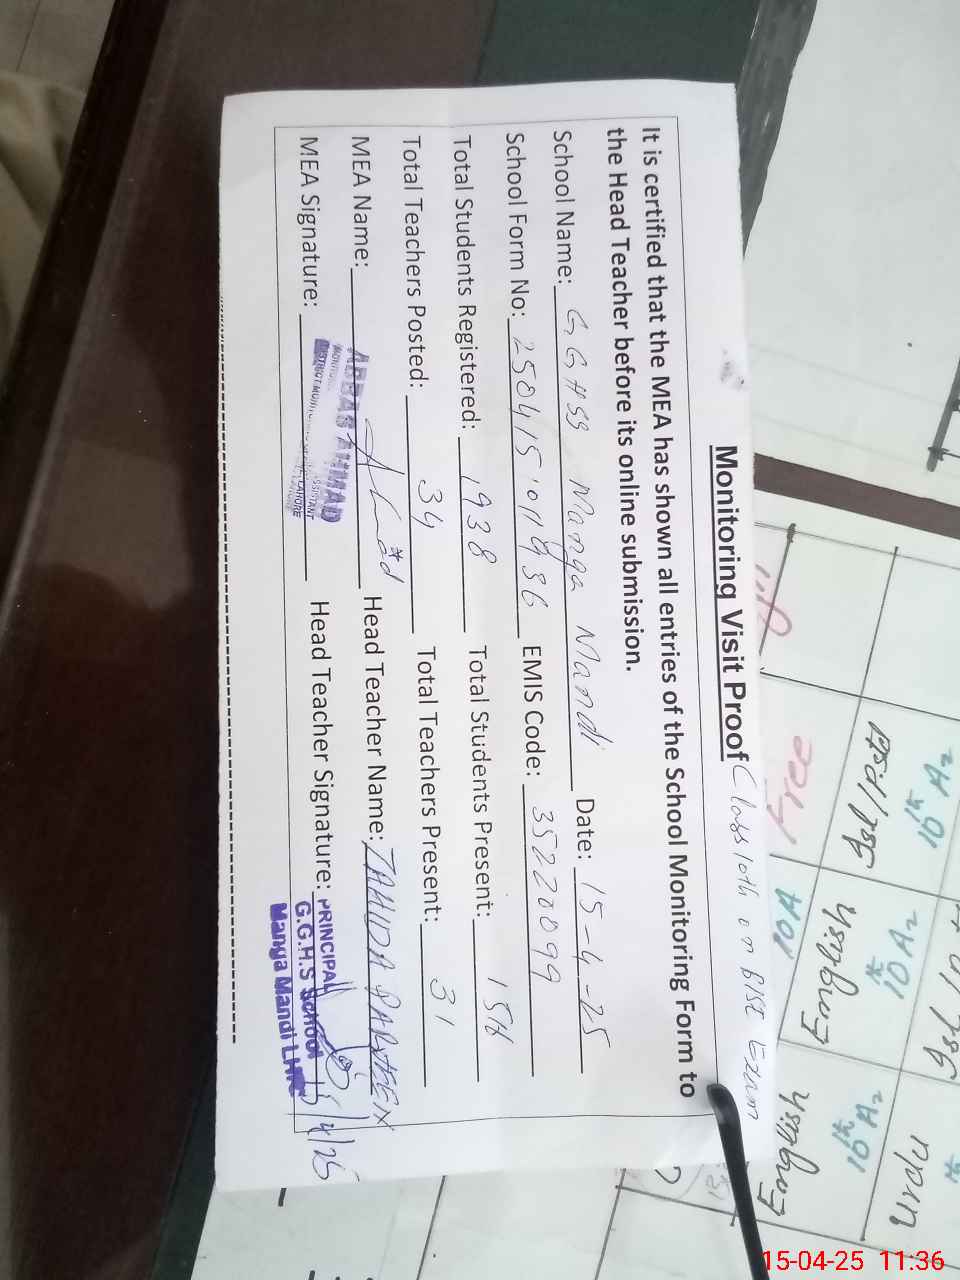 Monitoring Visit Proof
Class 10th on BISE Exam
It is certified that the MEA has shown all entries of the School Monitoring Form to
the Head Teacher before its online submission.
School Name: G.G.HSS Manga Mandi Date: 15-4-25
School Form No: EMIS Code: 35220099
Total Students Registered: 1938 Total Students Present:
Total Teachers Posted: 34 Total Teachers Present: 31
MEA Name: ABBAS AHMAD Head Teacher Name:
MEA Signature: Head Teacher Signature:
LAHORE
PRINCIPAL
G.G.H.S School
Manga Mandi
Free
10A
English
English
Urdu
10th A2
10th A2
10th A2
15-04-25 11:36